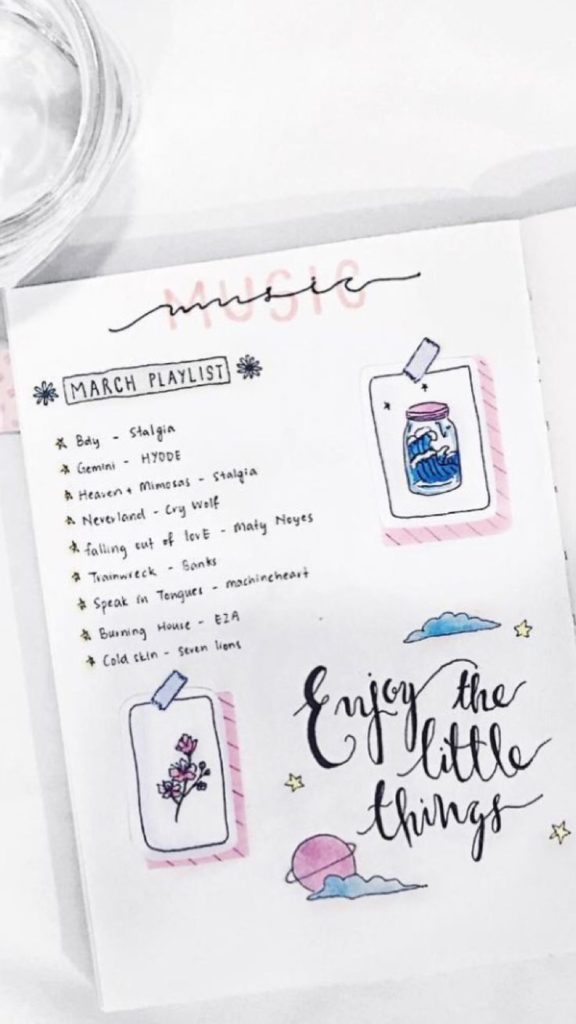 MUSIC
music
MARCH PLAYLIST
Bdy - Stalgia
Gemini - HYDDE
Heaven + Mimosas - Stalgia
Neverland - Cry Wolf
falling out of lovE - Maty Noyes
Trainwreck - Banks
Speak in Tongues - machineheart
Burning House - EZA
Cold skin - seven lions
Enjoy the
little
things